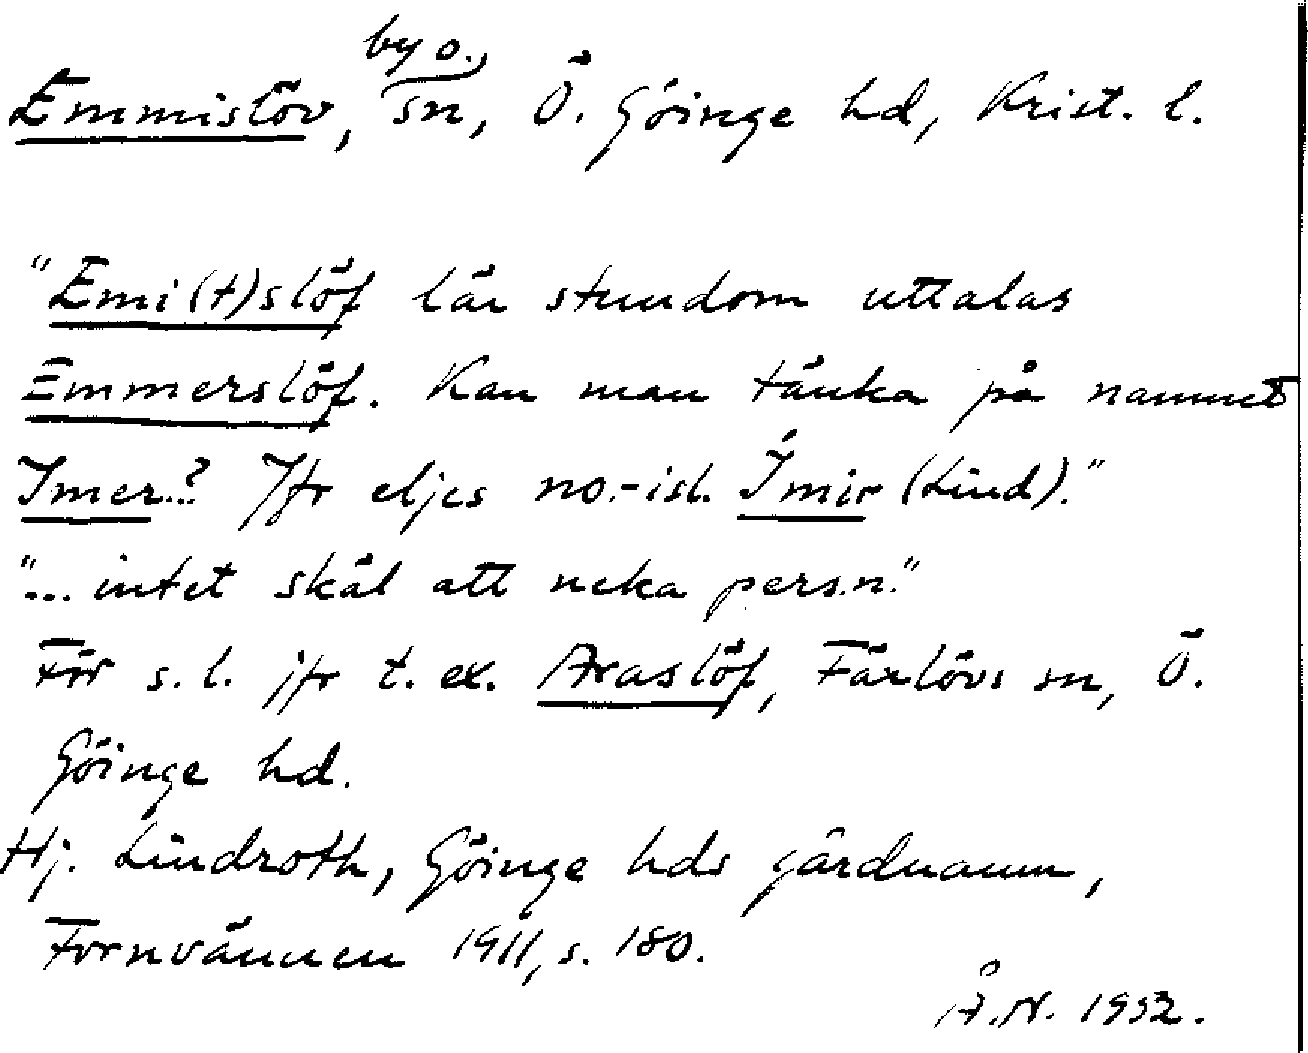 by o.
Emmislöv, sn, Ö. Göinge hd, Krist. l.
"Emi(t)slöf lär stundom uttalas
Emmerslöf. Kan man tänka på namnet
Imer? Jfr eljes no.-isl. Ímir (Lind)."
"... intet skäl att neka persn."
För s. l. jfr t. ex. Araslöf, Färlövs sn, Ö.
Göinge hd.
Hj. Lindroth, Göinge hds gårdnamn,
Fornvännen 1911, s. 180.
Å.N. 1952.